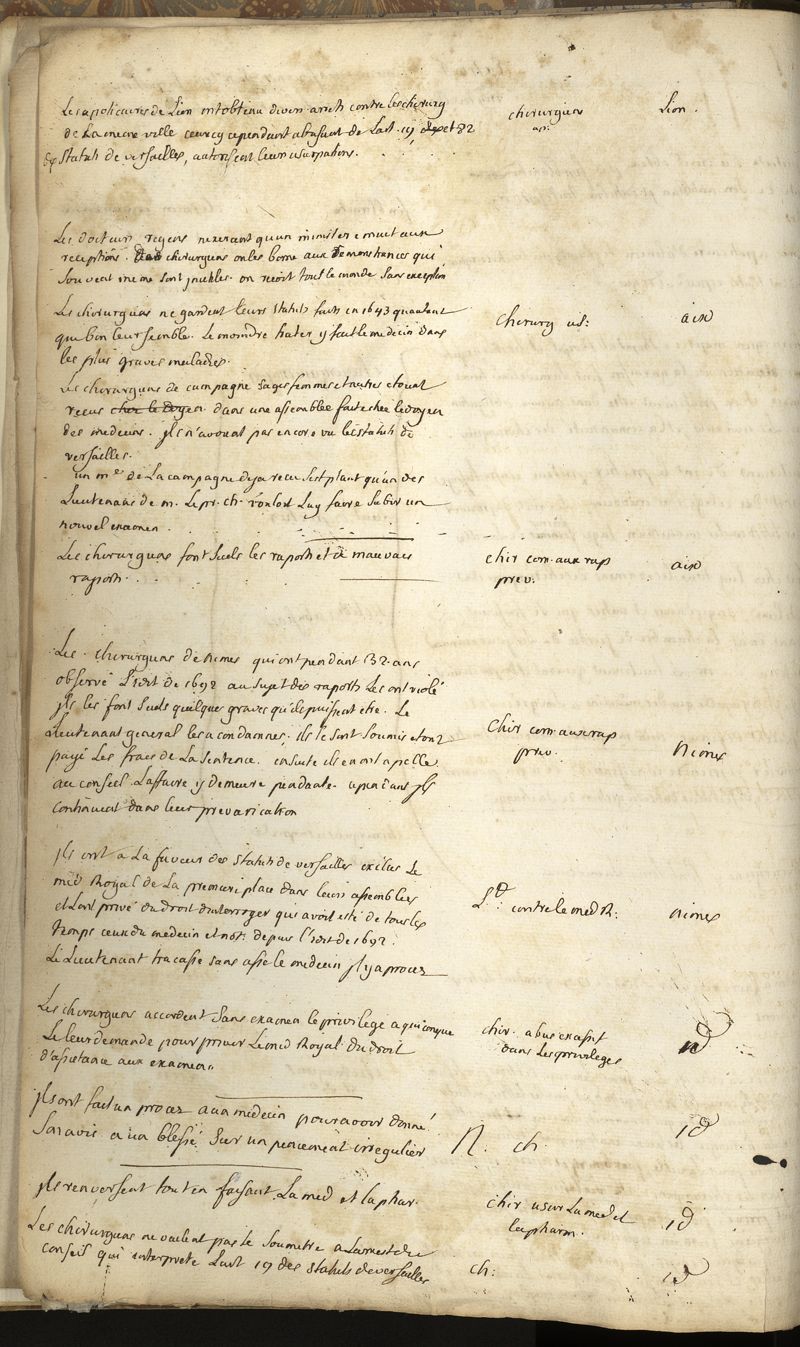 Les apoticaires de Lion ont obtenu divers arrets contre les chirurg
de La meme ville ceux cy cependant abusant de L'art. 19 et 82
statuts de versailles, autorisent leurs usurpations.
chirurgiens
Lion.
Les docteurs regens nexercent qu'un ministere muet aux
receptions. chirurgiens on les borne aux demonstrances qui
souvent meme sont inutiles. on recoit tout le monde sans exception
Les chirurgiens ne gardent leurs statuts faits en 1643 quautant
que bon leur semble. Le moindre frater y fait le medecin dans
les plus graves maladies.
chirurg us:
aix
Les chirurgiens de campagne sages femmes et autres etoient
recus chez le doyen dans une assemblée faite chez le doyen
des medecins. jls n'avoient pas encore vu les statuts de
versailles.
un me de La campagne deja recu s'est plaint qu'un des
Lieutenans de m. Le pr. ch. vouloit Luy faire subir un
nouvel examen.
Les chirurgiens font seuls les raports et de mauvais
raports.
chir com. aux rap
prev:
aix
Les chirurgiens de nimes qui ont pendant 32 ans
observé L'edit de 1692 au sujet des raports Les ont violé
jls les font seuls quelque graves qu'ils puissent etre. Le
Lieutenant general les a condamnés. ils se sont soumis et ont
payé Les frais de La sentence. ensuite ils en ont apellé
au conseil. L'affaire y demeure pendante. cependant jls
continuent dans leur prevarication
chir com. aux rap
prev.
Nimes
jls ont a La faveur des statuts de versailles exclus Le
med Royal de La premiere place dans leurs assemblées
et L'ont privé du droit d'interroger qui avoit esté de tous les
temps ceux du medecin et not: depuis l'edit de 1692.
Le Lieutenant tracasse sans cesse le medecin jl y a procez
Ld: contre le med R:
Nimes
Les chirurgiens accordent sans examen le privilege a quiconque
Le leur demande pour priver Le med Royal du droit
d'assistance aux examens
chir. abus en asst
dans Les privileges
id
jls ont fait un procez a un medecin pour avoir donné
son avis a un blessé sur un pencement irregulier
N. ch.
id
jls renversent tout en faisant La med et la phar.
chir usur La med et
la pharm.
id
Les chirurgiens ne veulent pas se soumetre a L'arrest du
conseil qui interprete L'art 19 des statuts de versailles
ch:
id